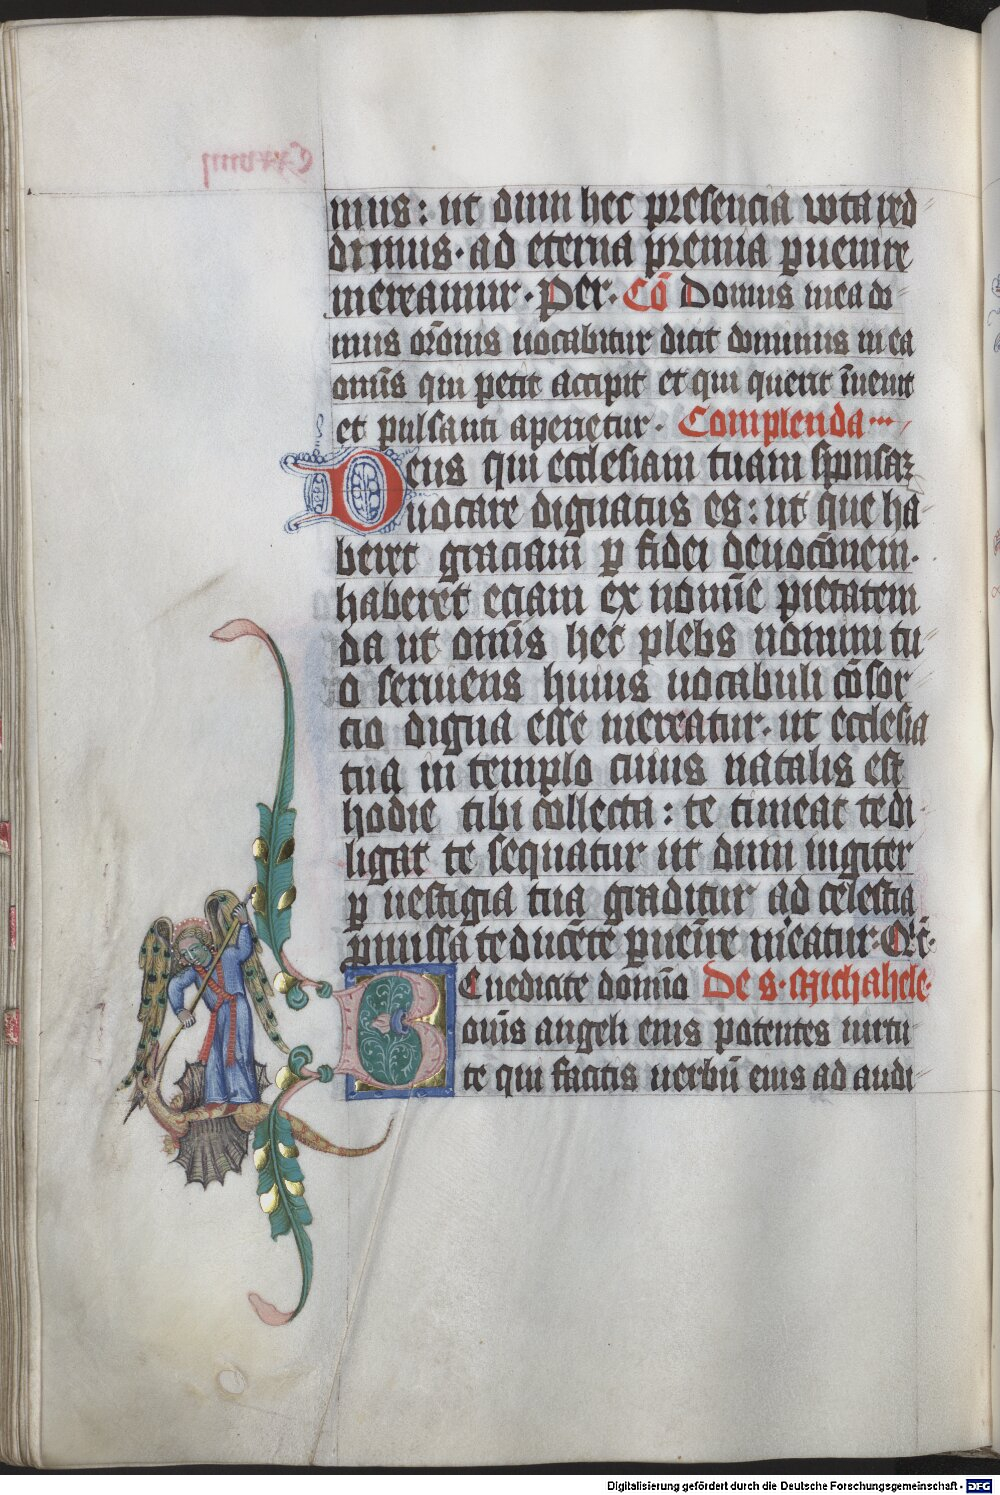 mus: ut dum hec presencia vota red
dimus. ad eterna premia puenire
mereamur. Per. Cō Domus mea do
mus or̄onis uocabitur dicit dominus in ea
omīs qui petit accipit et qui querit īuenit
et pulsanti aperietur. Complenda
Deus qui ecclesiam tuam sponsaꝫ
uocare dignatus es: ut que ha
beret graciam p fidei deuoc̄onem.
haberet eciam ex nomīe pietatem
da ut omīs hec plebs nomini tu
o seruiens huius uocabuli cōsor
cio digna esse mereatur. ut ecclesia
tua in templo cuius natalis est
hodie tibi collecta: te timeat te di
ligat te sequatur ut dum iugiter
p uestigia tua graditur ad celestia
pmissa te ducēte puēire mēatur. Q̄i
Benedicite dominū De s. Michahele.
omīs angeli eius potentes uirtu
te qui facitis uerbū eius ad audi
Digitalisierung gefördert durch die Deutsche Forschungsgemeinschaft - DFG